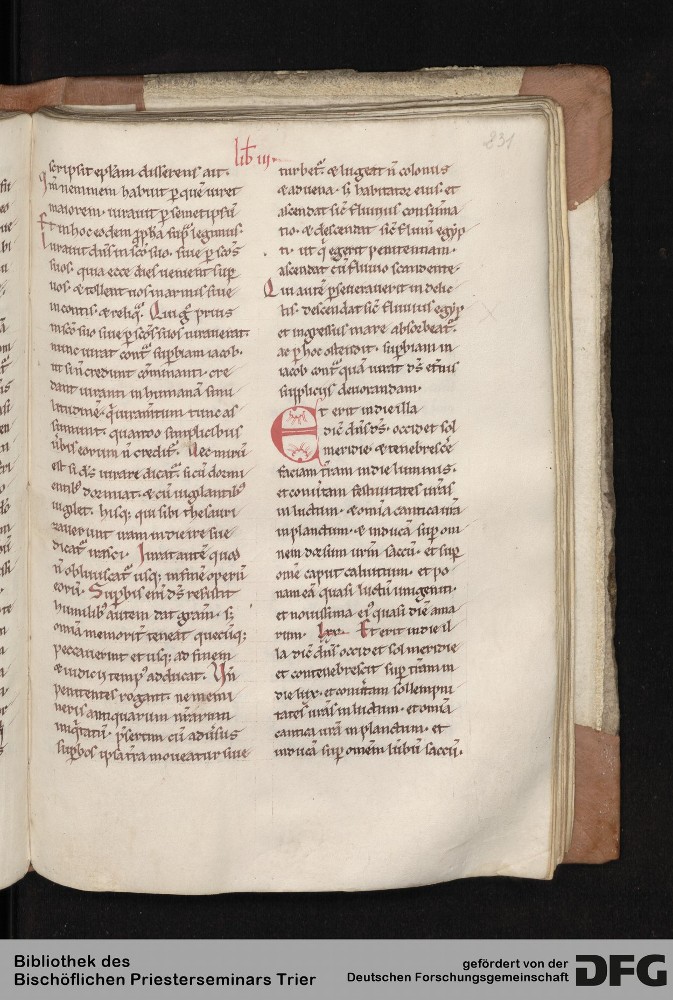 lib iii.
231
scripsit eplam disserens ait.
qm neminem habuit p quē iuret
maiorem. iurauit p semetipsū
Et in hoc eodem ppha sup legimus.
Iurauit dns in sco suo. siue p scos
suos. quia ecce dies uenient sup
uos. & tollent uos in armis siue
in contis. & reliq. Qui g prius
in sco suo siue p scos suos iurauerat.
nunc iurat cont supbiam iacob.
ut si n credunt cōminanti. cre
dant iuranti in humanā simi
litudinē. q iuramtum tunc as
sumunt. quando simplicibus
ubis eorum n credit. Nec mirū
est si ds iurare dicat. si cū dormi
entib dormiat. & cū uigilantib
uigilet. hisq; qui sibi thesauri
zauerunt iram in die ire sue
dicat irasci. Iurat autē quod
n obliuiscat usq; in finē operū
eorū. Supbis eni ds resistit
humilib autem dat gram. s;
omia memorit teneat quecūq;
peccauerint et usq; ad finem
& iudicii temp adducat. Vn
penitentes rogant. ne memi
neris antiquarum nrarum
iniqtatū. psertim cū aduersus
supbos ipsa tra moueatur siue
turbet. & lugeat n colonus
& aduena. s; habitator eius. et
ascendat sic fluuius consūma
tio. & descendat sic fluuī egyp
ti. ut q egerit penitentiam.
ascendat cū fluuio scandente.
Qui autē pseuerauerit in delic
tis. descendat sic fluuius egyp
et ingressus mare absorbeat.
ac p hoc ostendit. supbiam in
iacob cont quā iurat ds etnis
suppliciis deuorandam.
Et erit in die illa
dic dns ds. occidet sol
meridie. & tenebrescē
faciam tram in die luminis.
et conutam festiuitates uras
in luctum. & omia cantica ura
in planctum. & inducā sup om
nem dorsum urm saccū. et sup
omē caput caluitium. et po
nam eā quasi luctū unigeniti.
et nouissima ei quasi diē ama
rum. lxx. Et erit in die il
la dic dns occidet sol meridie
et contenebrescit sup tram in
die lux. et conutam sollempni
tates uras in luctum. et omia
cantica ura in planctum. et
inducā sup omem lūbū saccū.
Bibliothek des
Bischöflichen Priesterseminars Trier
gefördert von der
Deutschen Forschungsgemeinschaft
DFG